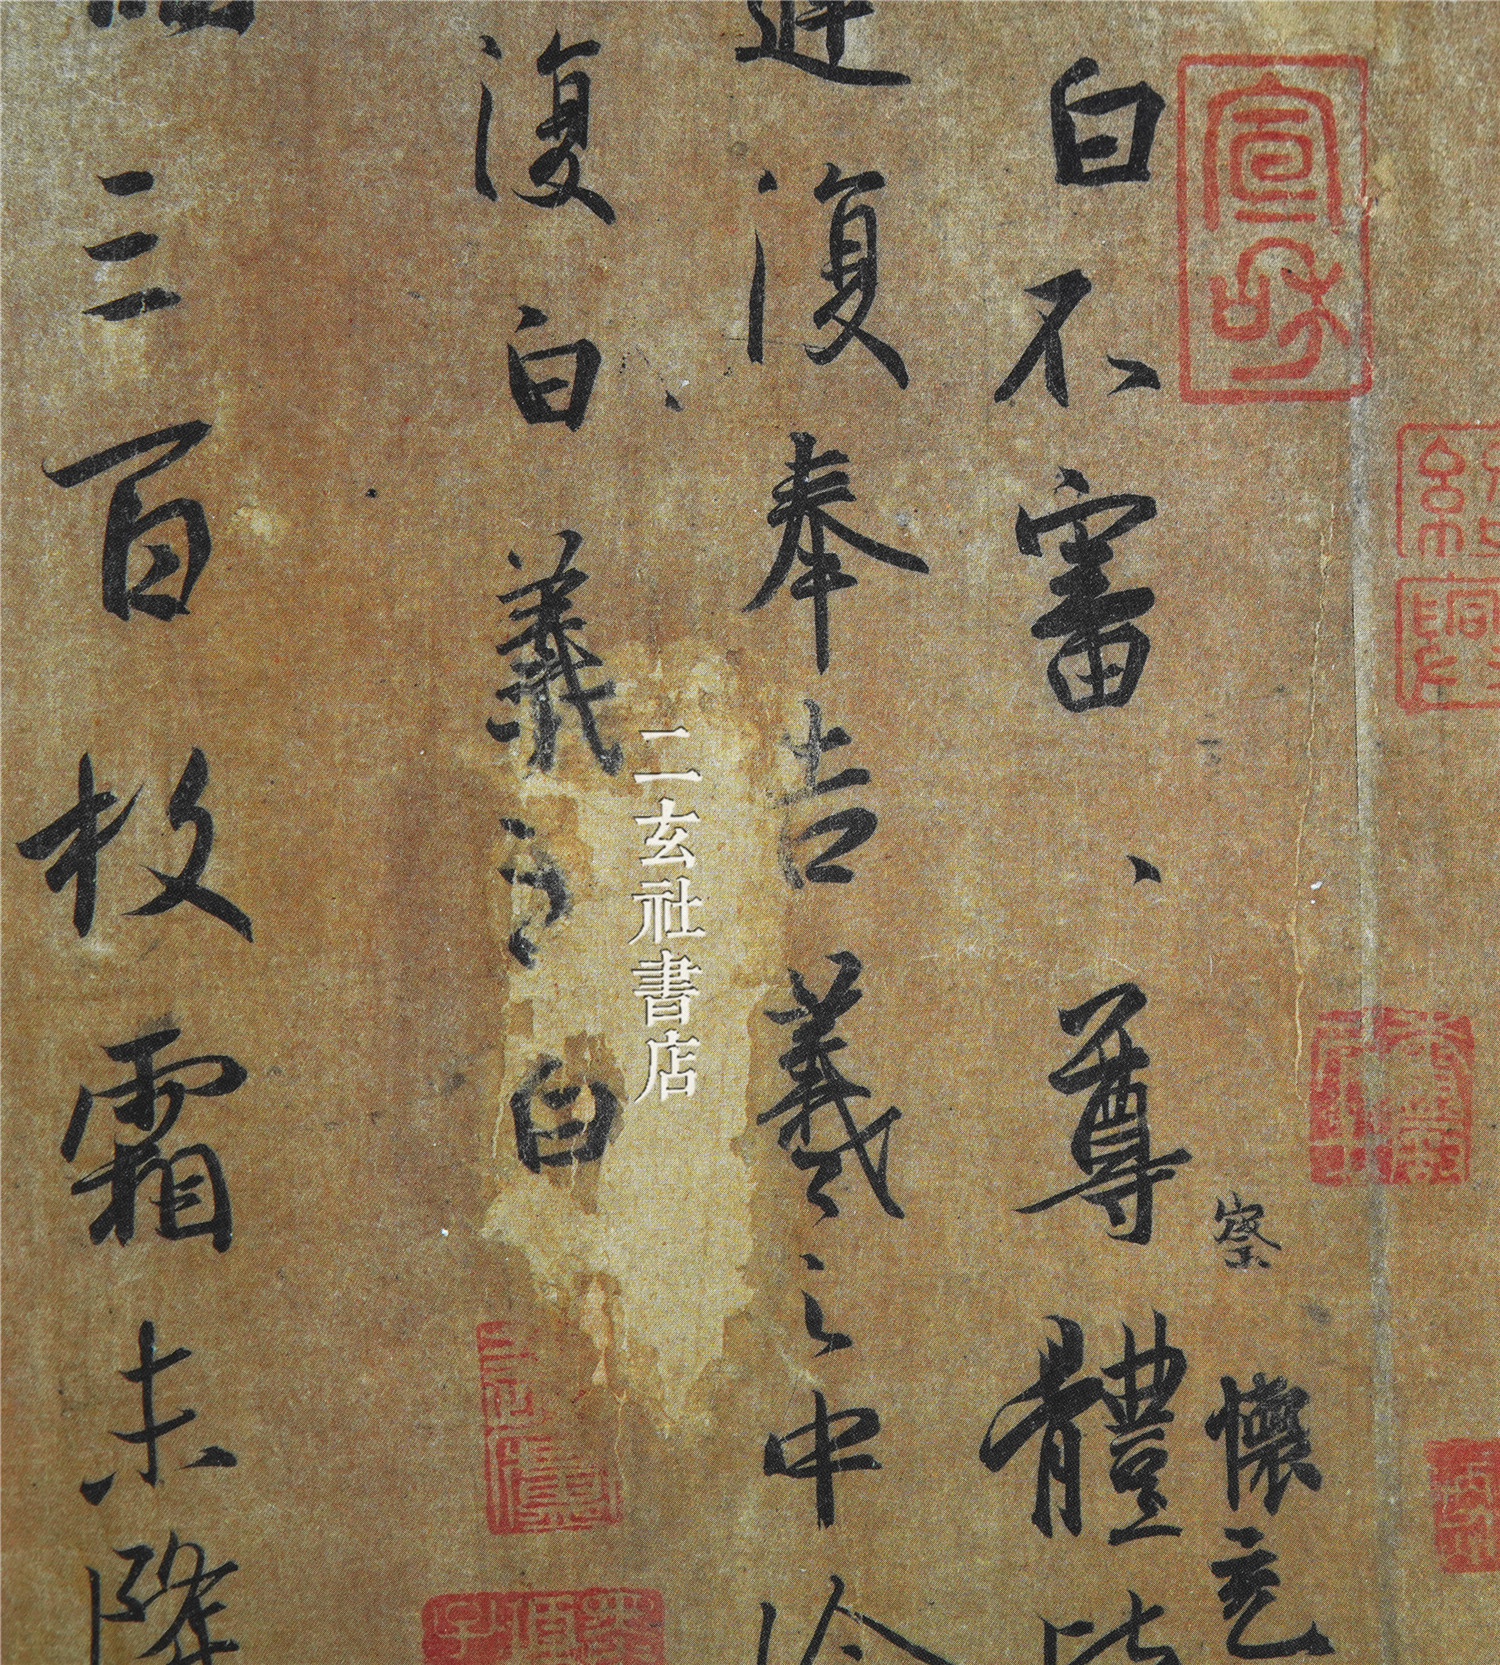 宣和
察 懷充
白不審、尊體比
遲復奉告羲之中冷
復白羲之白
三百枚霜未降
二玄社書店